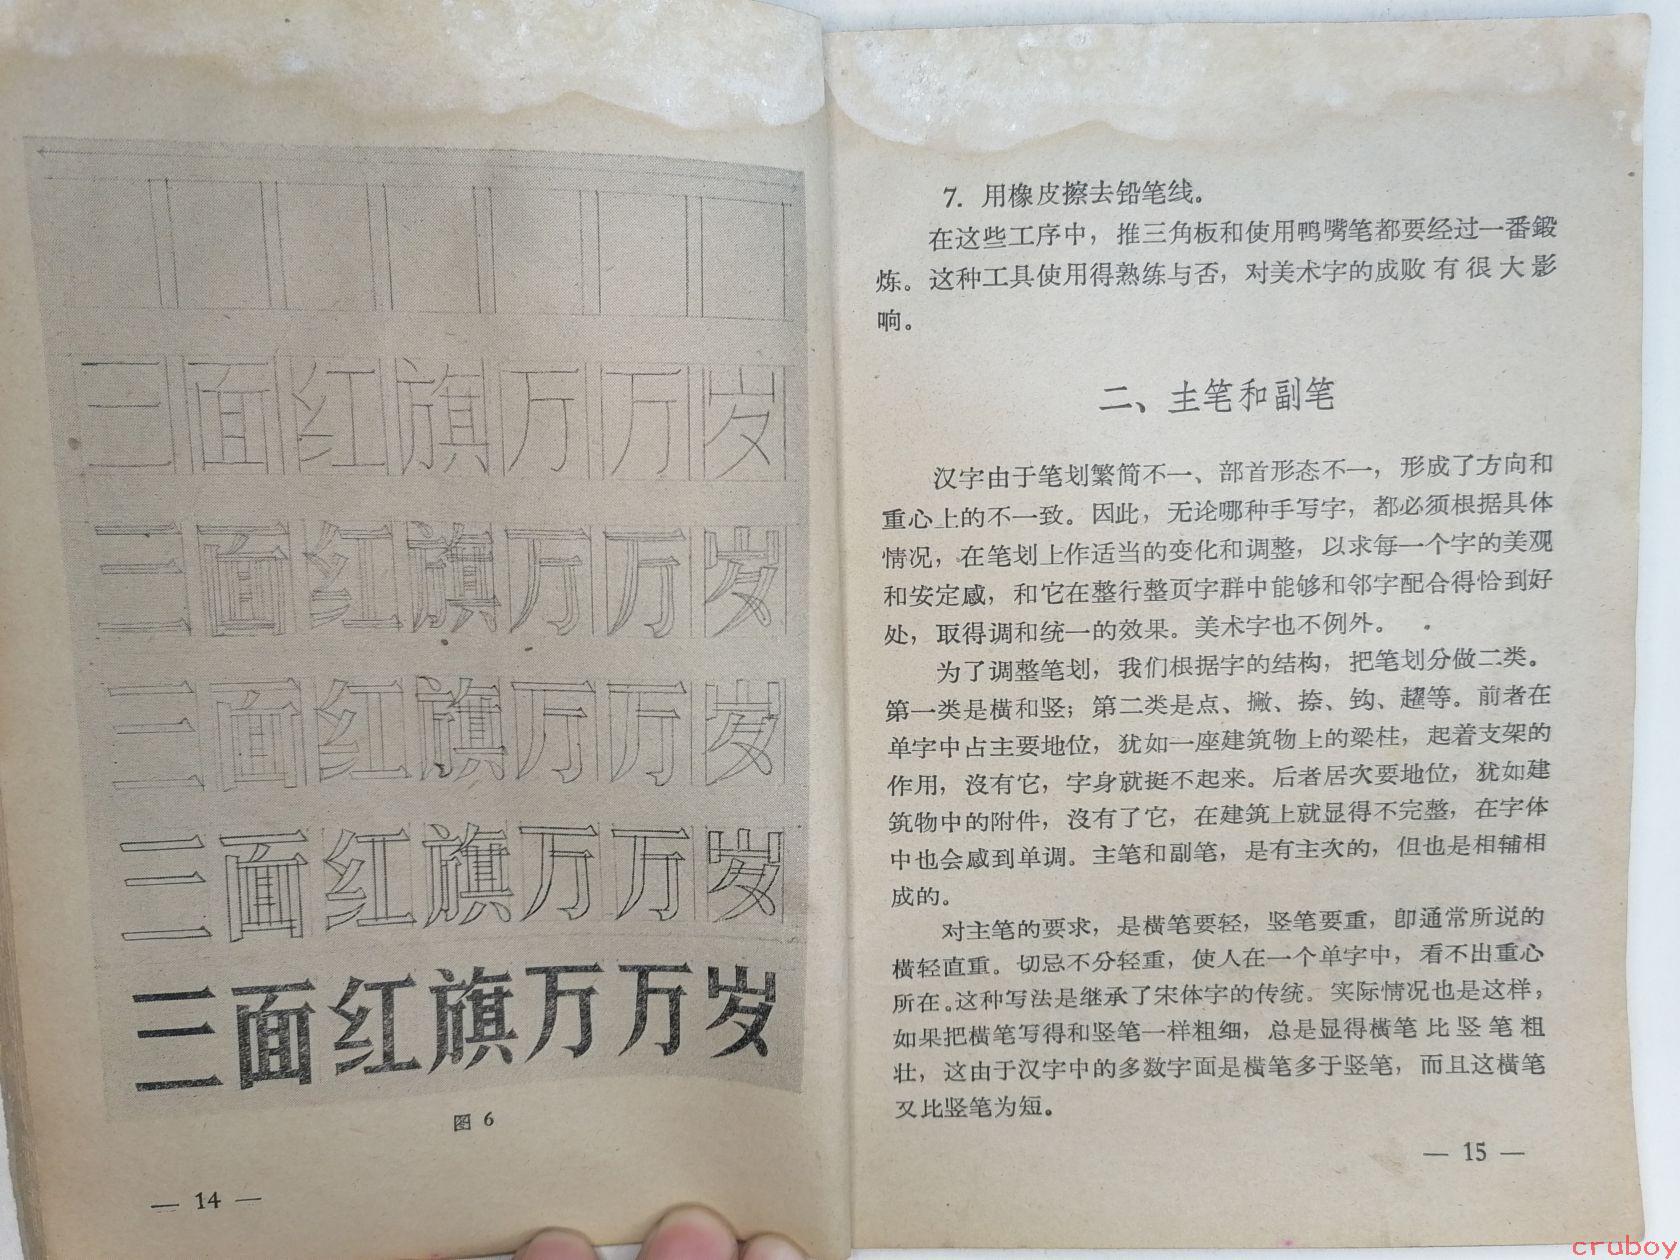 三面红旗万万岁
三面红旗万万岁
三面红旗万万岁
三面红旗万万岁
三面红旗万万岁
图 6
— 14 —
7. 用橡皮擦去铅笔线。
在这些工序中，推三角板和使用鸭嘴笔都要经过一番鍛
炼。这种工具使用得熟练与否，对美术字的成败有很大影
响。
二、主笔和副笔
汉字由于笔划繁简不一、部首形态不一，形成了方向和
重心上的不一致。因此，无论哪种手写字，都必须根据具体
情况，在笔划上作适当的变化和调整，以求每一个字的美观
和安定感，和它在整行整页字群中能够和邻字配合得恰到好
处，取得调和统一的效果。美术字也不例外。
为了调整笔划，我们根据字的结构，把笔划分做二类。
第一类是横和竖；第二类是点、撇、捺、钩、趯等。前者在
单字中占主要地位，犹如一座建筑物上的梁柱，起着支架的
作用，沒有它，字身就挺不起来。后者居次要地位，犹如建
筑物中的附件，沒有了它，在建筑上就显得不完整，在字体
中也会感到单调。主笔和副笔，是有主次的，但也是相辅相
成的。
对主笔的要求，是横笔要轻，竖笔要重，卽通常所说的
横轻直重。切忌不分轻重，使人在一个单字中，看不出重心
所在。这种写法是继承了宋体字的传统。实际情况也是这样，
如果把横笔写得和竖笔一样粗细，总是显得横笔比竖笔粗
壮，这由于汉字中的多数字面是横笔多于竖笔，而且这横笔
又比竖笔为短。
— 15 —
cruboy